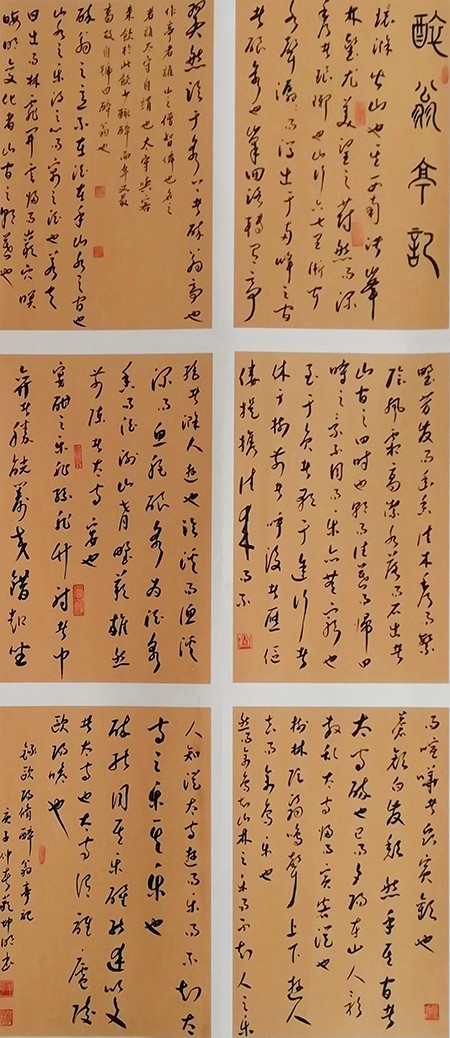 醉翁亭記
環滁皆山也其西南諸峰
林壑尤美望之蔚然而深
秀者琅琊也山行六七里漸聞
水聲潺潺而瀉出于兩峰之間
者釀泉也峰回路轉有亭
翼然臨于泉上者醉翁亭也
作亭者誰山之僧智仙也名之
者誰太守自謂也太守與客
來飲於此飲少輒醉而年又最
高故自號曰醉翁也
醉翁之意不在酒在乎山水之間也
山水之樂得之心而寓之酒也若夫
日出而林霏開雲歸而巖穴暝
晦明變化者山間之朝暮也
野芳發而幽香佳木秀而繁
陰風霜高潔水落而石出者
山間之四時也朝而往暮而歸四
時之景不同而樂亦無窮也
至于負者歌于途行者
休于樹前者呼後者應傴
僂提攜往來而不
絕者滁人遊也臨溪而漁溪
深而魚肥釀泉為酒泉
香而酒洌山肴野蔌雜然
前陳者太守宴也
宴酣之樂非絲非竹射者中
弈者勝觥籌交錯起坐
而喧嘩者衆賓歡也
蒼顏白发頹然乎其間者
太守醉也已而夕陽在山人影
散亂太守歸而賓客從也
樹林陰翳鳴聲上下遊人
去而禽鳥樂也
然而禽鳥知山林之樂而不知人之樂
人知從太守遊而樂而不知太
守之樂其樂也
醉能同其樂醒能述以文
者太守也太守謂誰廬陵
歐陽修也
錄歐陽脩醉翁亭記
庚子仲春坤明书